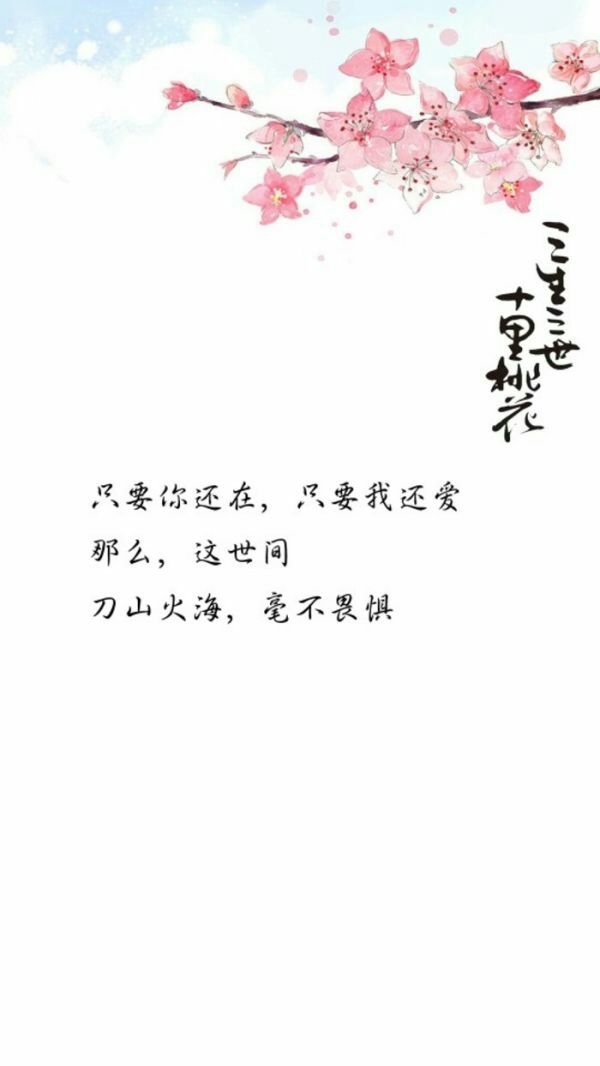 三生三世
十里桃花
只要你还在，只要我还爱
那么，这世间
刀山火海，毫不畏惧